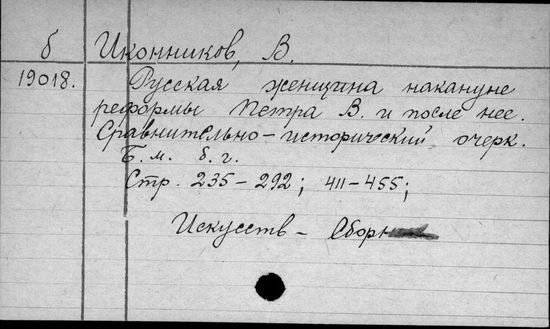 б Иконников, В.
19018. Русская женщина накануне
реформы Петра В. и после нее.
Сравнительно-исторический очерк.
Б. м. б. г.
Стр. 235-292; 411-455;
Искусств-